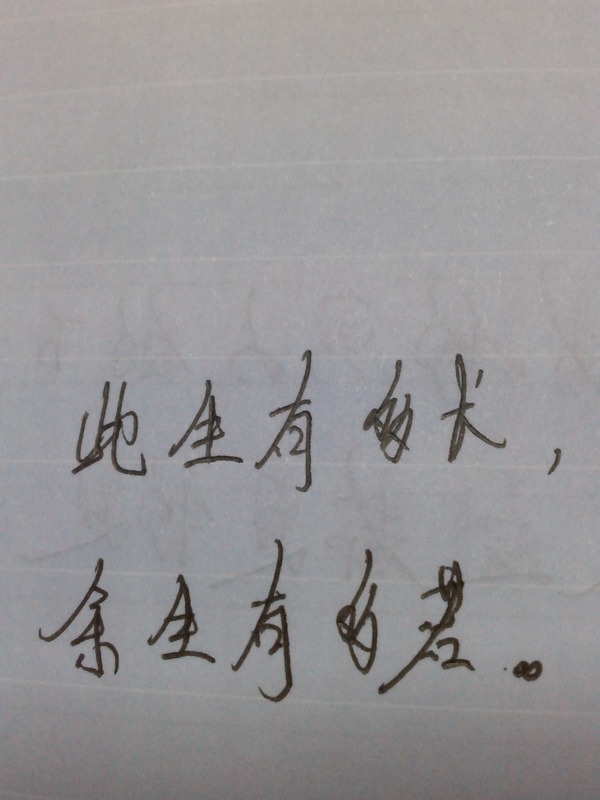 此生有多长，
余生有多苦…